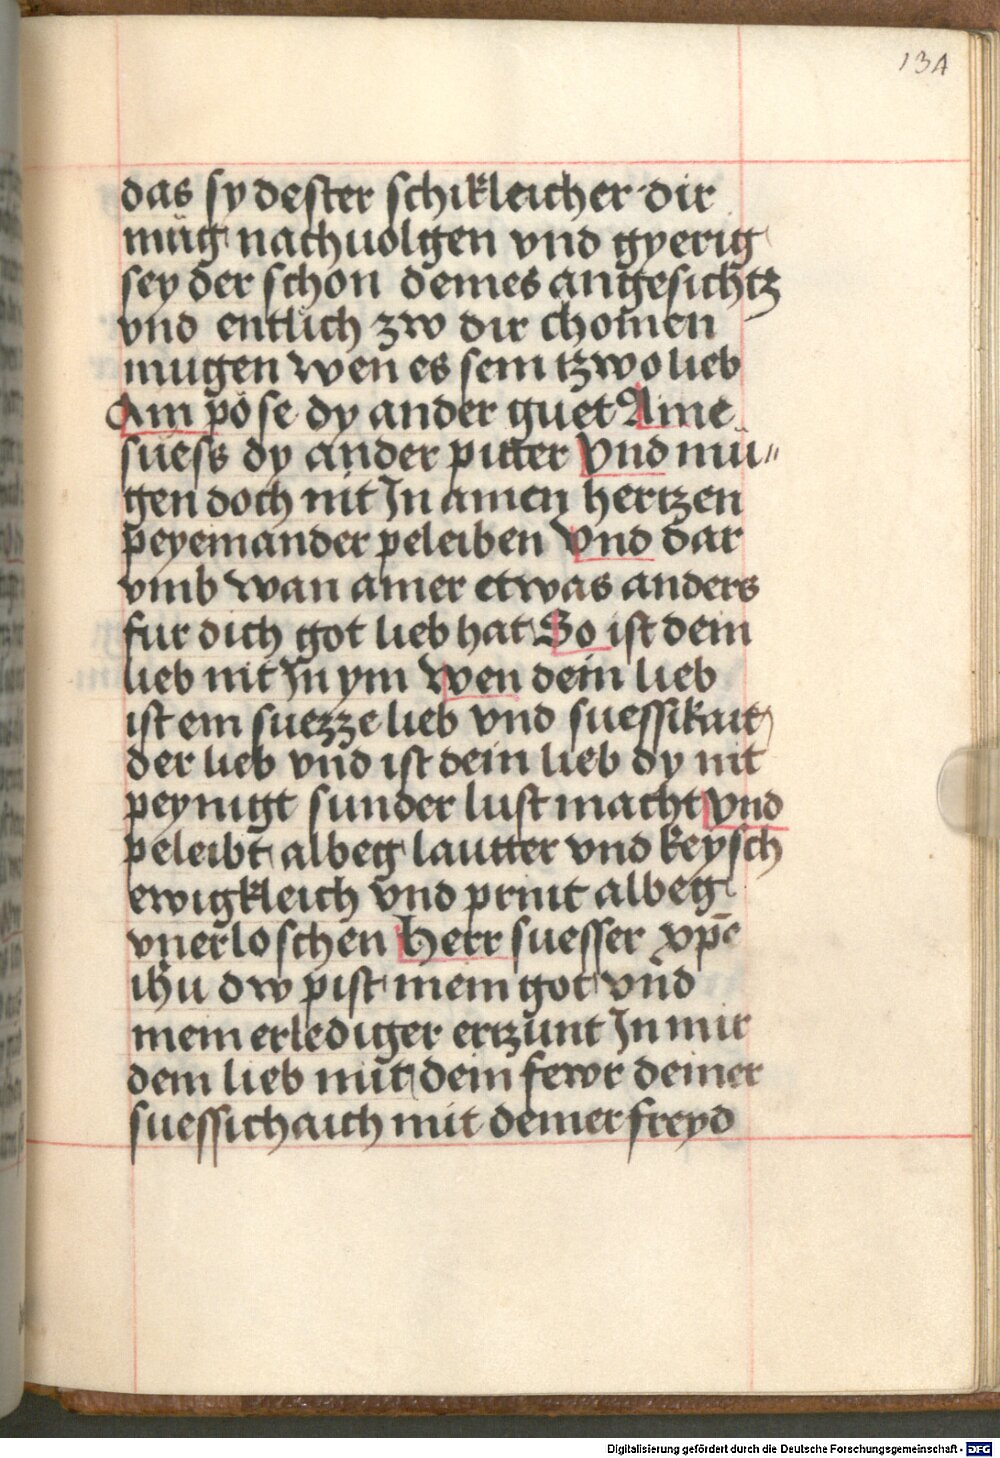 134
das sy dester schikleicher dir
müg nachuolgen vnd gyerig
sey der schon deines angesichtz
vnd entlich zw dir chomen
mugen wen es sein tzwo lieb
Ain pöse dy ander guet Aine
suess dy ander pitter Vnd mü〃
gen doch nit In ainen hertzen
peyeinander peleiben Vnd dar
vmb wan ainer etwas anders
fur dich got lieb hat So ist dein
lieb nit In ym Wen dein lieb
ist ein suezze lieb vnd suessikait
der lieb vnd ist dein lieb dy nit
peynigt sunder lust macht Vnd
peleibt albeg lautter vnd keysch
ewigkleich vnd print albeg
vnerloschen Herr suesser xp̄e
ihū dw pist mein got vnd
mein erlediger ertzünt In mir
dein lieb mit dein fewr deiner
suessichaich mit deiner freyd
Digitalisierung gefördert durch die Deutsche Forschungsgemeinschaft - DFG